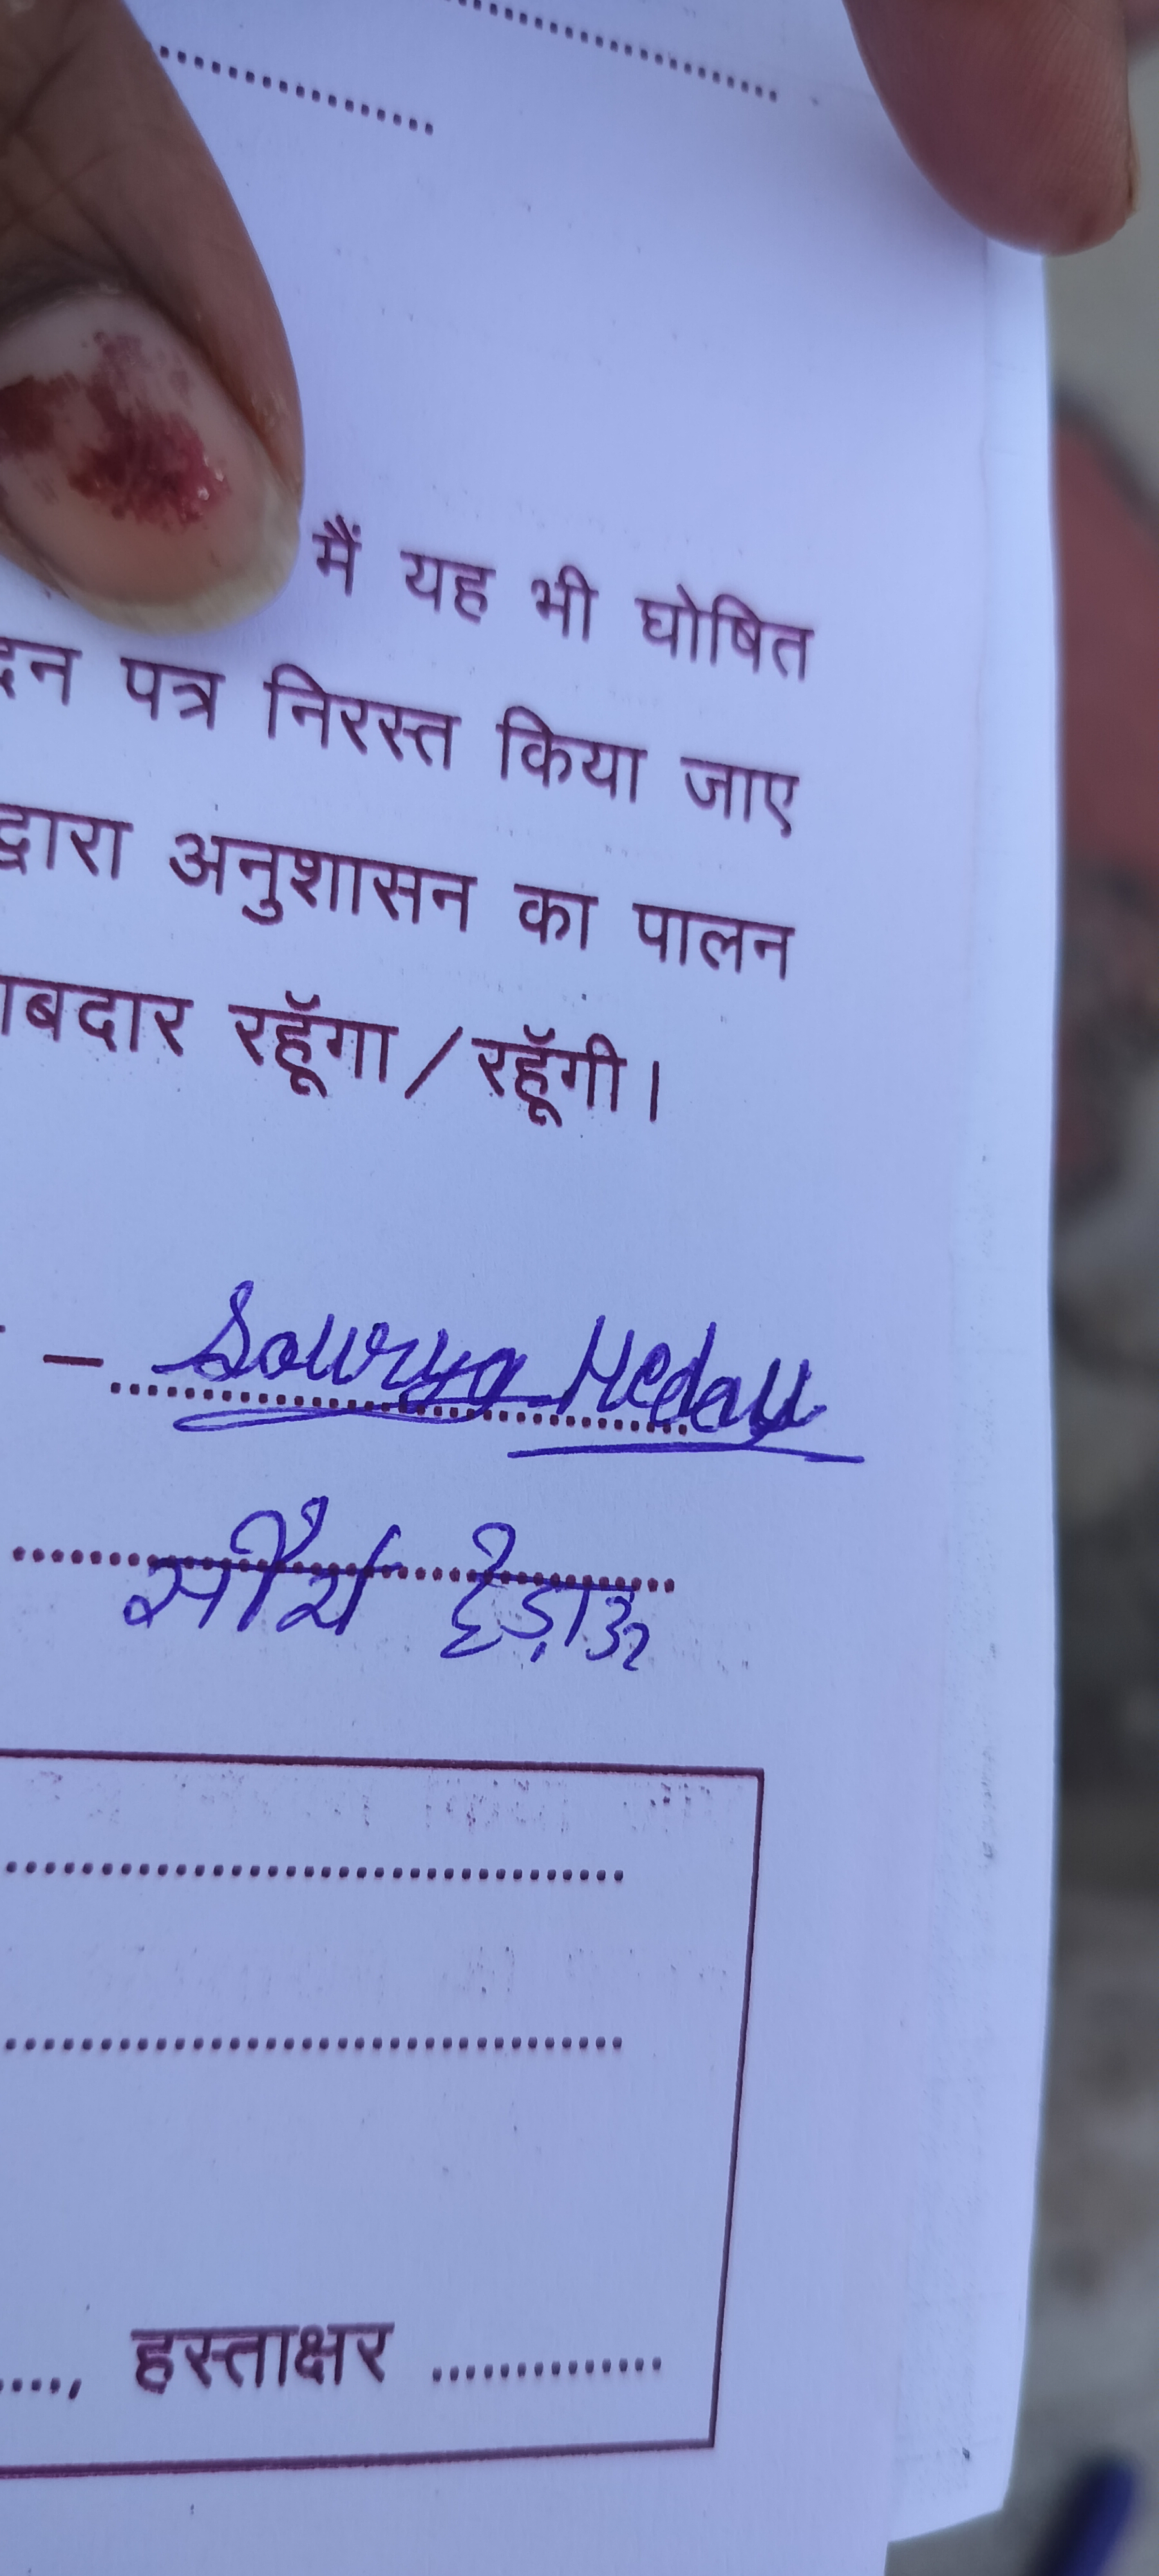 मैं यह भी घोषित
पत्र निरस्त किया जाए
द्वारा अनुशासन का पालन
रहूँगा / रहूँगी।
– Sourya Hedau
सौर्य हेड़ाऊ
हस्ताक्षर